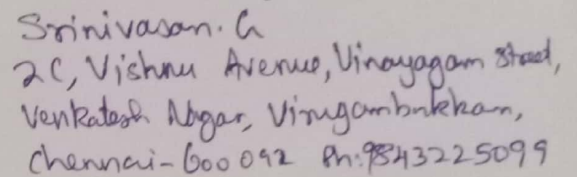 Srinivasan. G
2C, Vishnu Avenue, Vinayagam Street,
Venkatesh Nagar, Virugambakkam,
Chennai - 600 092 Ph: 9843225099